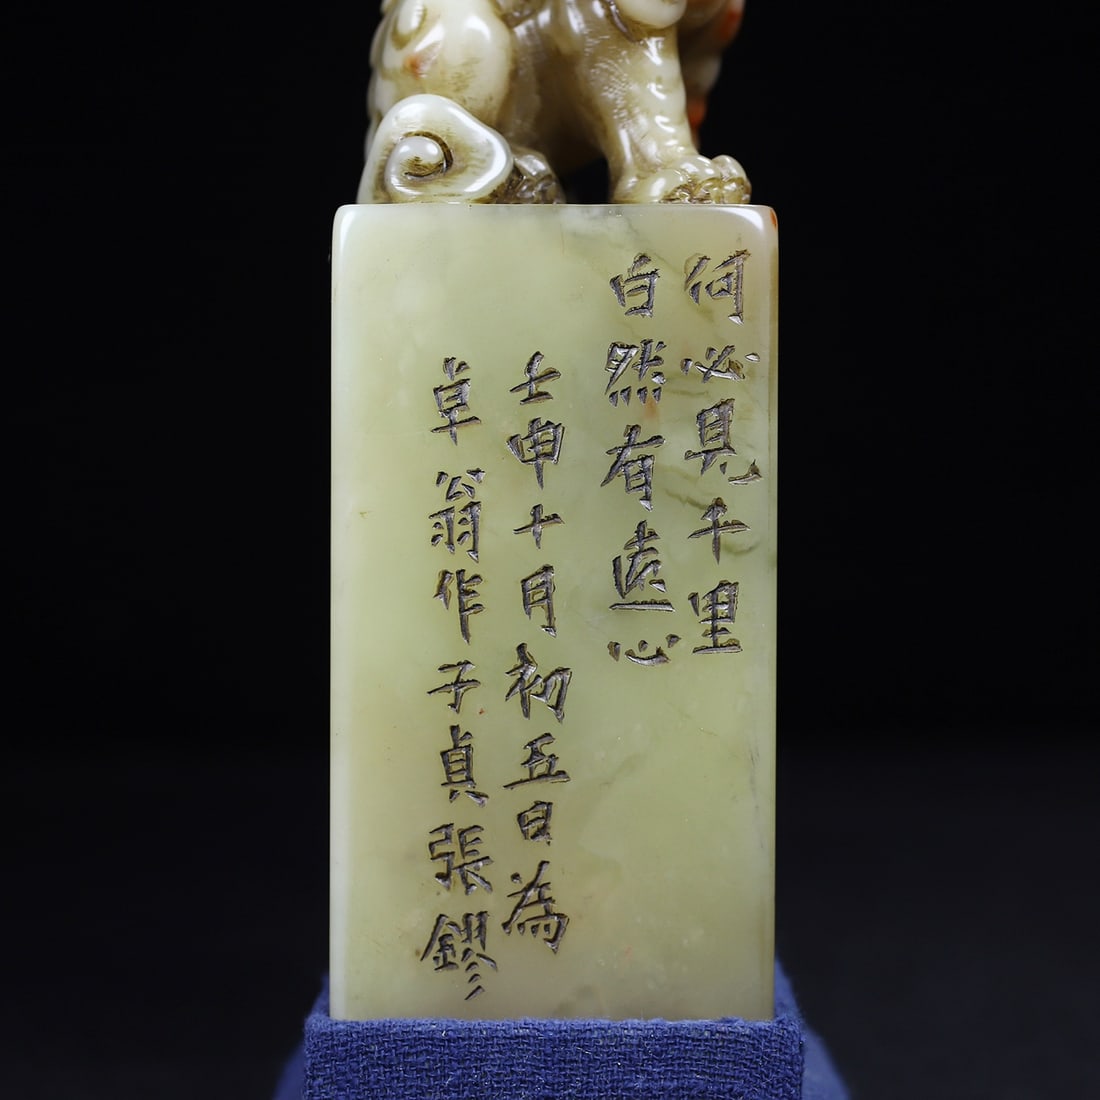 何必見千里
自然有遠心
壬申十月初五日為
卓翁作子貞張鏐